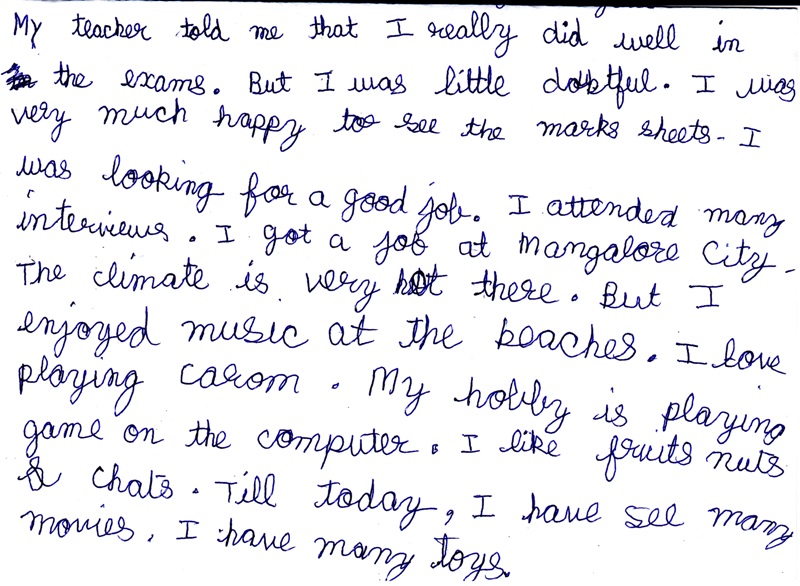 My teacher told me that I really did well in
the exams. But I was little dobtful. I was
very much happy to see the marks sheets. I
was looking for a good job. I attended many
interviews. I got a job at Mangalore City.
The climate is very hot there. But I
enjoyed music at the beaches. I love
playing carom. My hobby is playing
game on the computer. I like fruits nuts
& chats. Till today, I have see many
movies. I have many toys.